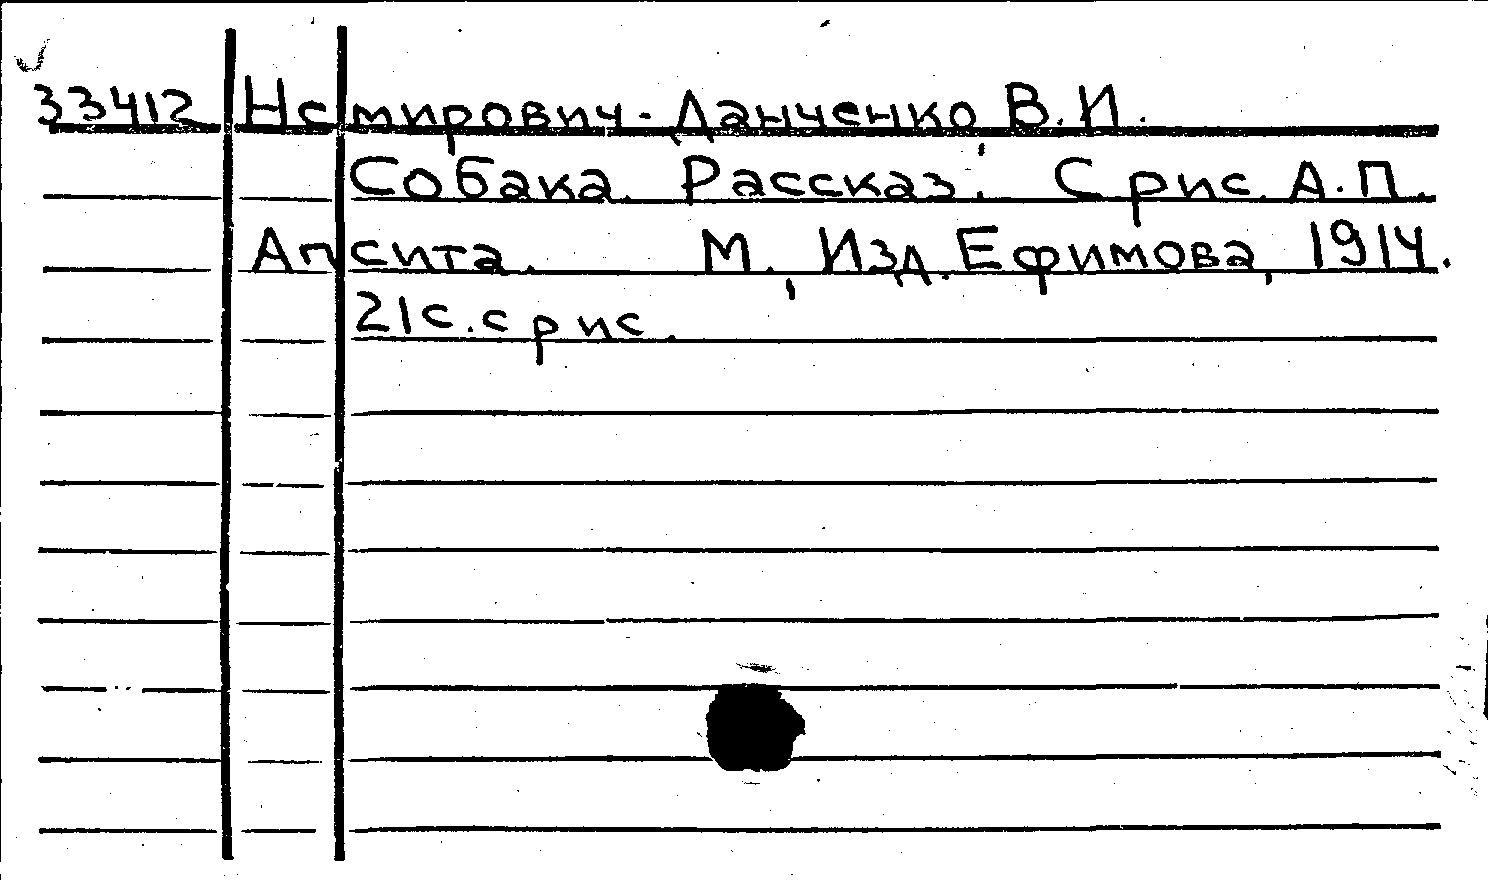 33412 Немирович-Данченко, В.И.
Собака. Рассказ. С рис. А.П.
Апсита. М., Изд. Ефимова, 1914.
21с. с рис.